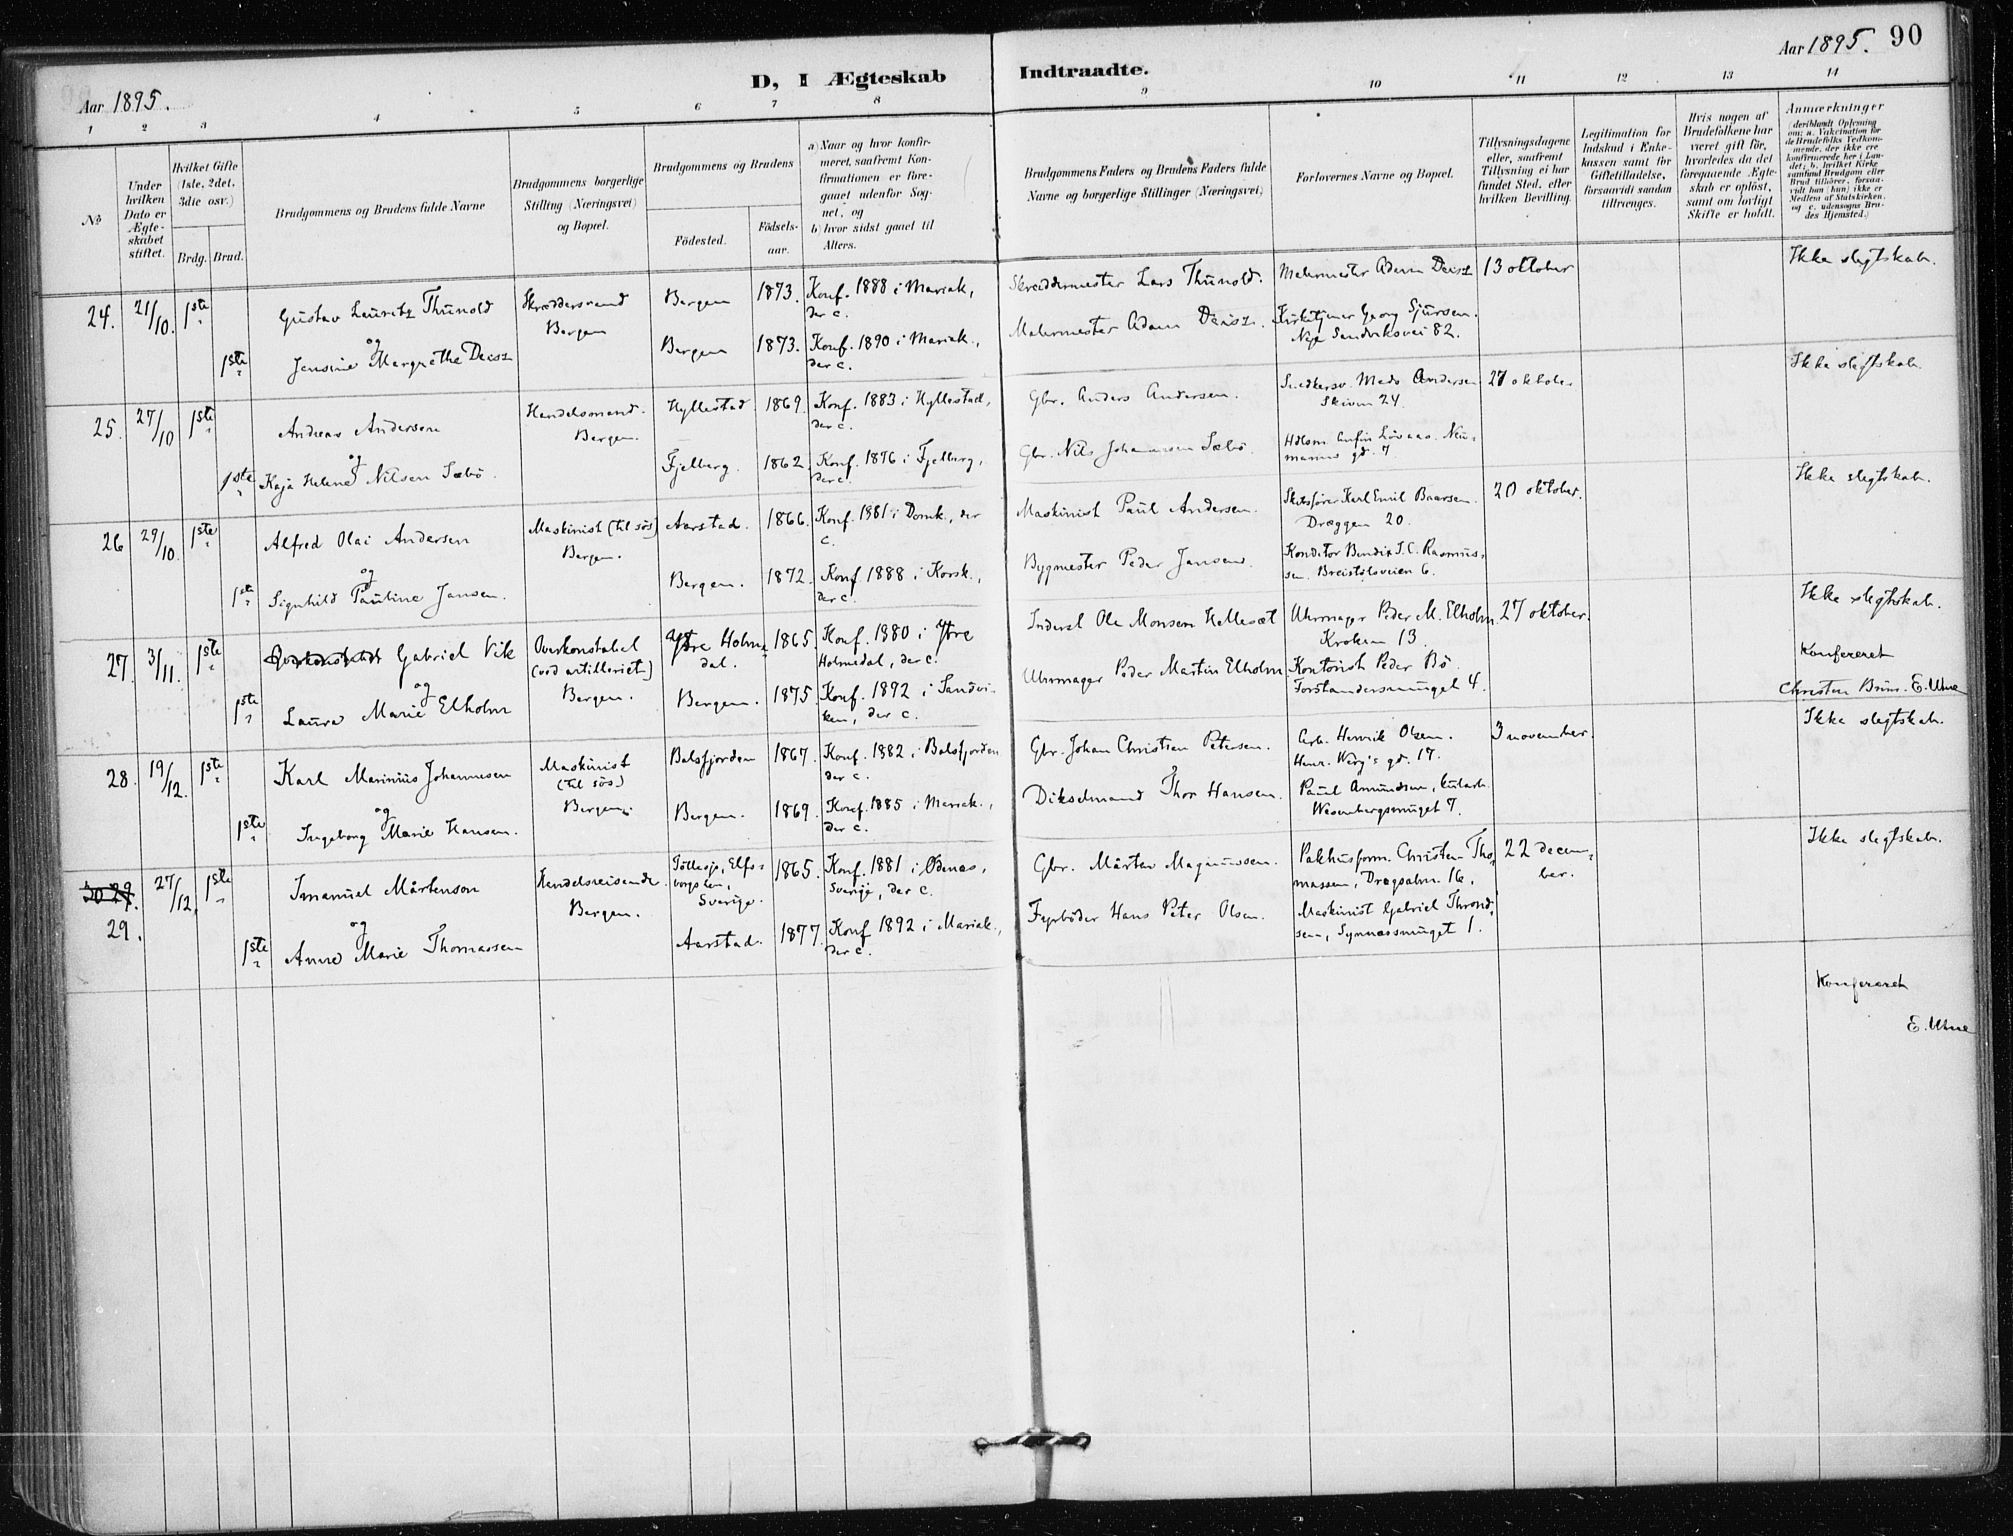 Aar 1895.
D, I Ægteskab Indtraadte.
Aar 1895. 90
1 2 3 4 5 6 7 8 9 10 11 12 13 14
No
Under hvilken Dato er Ægteskabet stiftet.
Hvilket Gifte (1ste, 2det, 3die osv.)
Brdg. Brud.
Brudgommens og Brudens fulde Navne
Brudgommens borgerlige Stilling (Næringsvei) og Bopæl.
Brudgommens og Brudens
Fødested.
Fødselsaar.
a) Naar og hvor konfirmeret, saafremt Konfirmationen er foregaaet udenfor Sognet, og
b) hvor sidst gaaet til Alters.
Brudgommens Faders og Brudens Faders fulde Navne og borgerlige Stillinger (Næringsvei)
Forlovernes Navne og Bopæl.
Tillysningsdagene eller, saafremt Tillysning ei har fundet Sted, efter hvilken Bevilling.
Legitimation for Indskud i Enkekassen samt for Giftetilladelse, forsaavidt saadan tiltrænges.
Hvis nogen af Brudefolkene har været gift før, hvorledes da det foregaaende Ægteskab er opløst, samt om lovligt Skifte er holdt.
Anmærkninger
(deriblandt Oplysning om: a. Vakcination for de Brudefolks Vedkommende, der ikke ere konfirmerede her i Landet; b. hvilket Kirkesamfund Brudgom eller Brud tilhører, forsaavidt han (hun) ikke er Medlem af Statskirken, og c. udensogns Brudes Hjemsted.)
24. 21/10. 1ste Gustav Lauritz Thunold
og
1ste Jensine Margrethe Deisz
Skræddersvend
Bergen
Bergen 1873. Konf. 1888 i Mariak., der c.
Bergen 1873. Konf. 1890 i Mariak., der c.
Skræddermester Lars Thunold.
Malermester Adam Deisz.
Malermester Adam Deisz
Kirketjener Georg Sjursen.
Nye Sandviksvei 82.
13 oktober
Ikke slegtskab.
25. 27/10 1ste Andreas Andersen
og
1ste Kaja Helene Nilsen Sæbø.
Handelsmand.
Bergen.
Hyllestad 1869. Konf. 1883 i Hyllestad, der c.
Fjelberg. 1862. Konf. 1876 i Fjelberg, der c.
Gbr. Anders Andersen.
Gbr. Nils Johannesen Sæbø.
Snedkersv. Mads Andersen
Skiven 24.
Hdlsm. Anfin Løvaas. Neumanns gd. 7
27 oktober
Ikke slegtskab.
26 29/10. 1ste Alfred Olai Andersen
og
1ste Signhild Pauline Jansen.
Maskinist (til søs)
Bergen.
Aarstad. 1866. Konf. 1881 i Domk., der c.
Bergen. 1872. Konf 1888 i Korsk., der c.
Maskinist Paul Andersen.
Bygmester Peder Jansen.
Skibsfører Karl Emil Baarsen.
Dræggen 20.
Konditor Bendix J. C. Rasmussen. Breistølsveien 6.
20 oktober.
Ikke slegtskab.
27. 3/11. 1ste Overkonstabel Gabriel Vik
og
1ste Laura Marie Elholm
Overkonstabel
(ved artilleriet)
Bergen.
Ytre Holmedal. 1865. Konf. 1880 i Ytre Holmedal, der c.
Bergen. 1875. Konf. 1892 i Sandviken, der c.
Inderst Ole Monsen Hellesæt
Uhrmager Peder Martin Elholm
Uhrmager Peder M. Elholm.
Kroken 13.
Kontorist Peder Bø.
Forstandersmuget 4.
27 oktober.
Ikke slegtskab.
Konfereret
Christen Brun. E. Utne
28. 19/12. 1ste Karl Marinius Johannesen
og
1ste Ingeborg Marie Hansen.
Maskinist
(til søs)
Bergen.
Balsfjorden 1867. Konf. 1882 i Balsfjorden der c.
Bergen. 1869. Konf. 1885 i Mariak., der c.
Gbr. Johan Christian Petersen.
Dikselmand Thor Hansen.
Arb. Henrik Olsen.
Henr. Werg's gd. 17.
Paul Amundsen, kularb.
Wesenbergsmuget 7.
3 november
Ikke slegtskab.
30 29.
29. 27/12. 1ste Imanuel Mårtenson
og
1ste Anne Marie Thomassen
Handelsreisende
Bergen.
Töllesjö, Elfsborgs len, Sverige. 1865. Konf. 1881 i Ödenäs, Sverige, der c.
Aarstad. 1877. Konf 1892 i Mariak., der c.
Gbr. Mårten Magnussen.
Fyrbøder Hans Peter Olsen.
Pakhusform. Christen Thomassen, Drægsalm. 16.
Maskinist Gabriel Throndsen, Synnæssmuget 1.
22 december.
Ikke slegtskab.
Konfereret
E. Utne